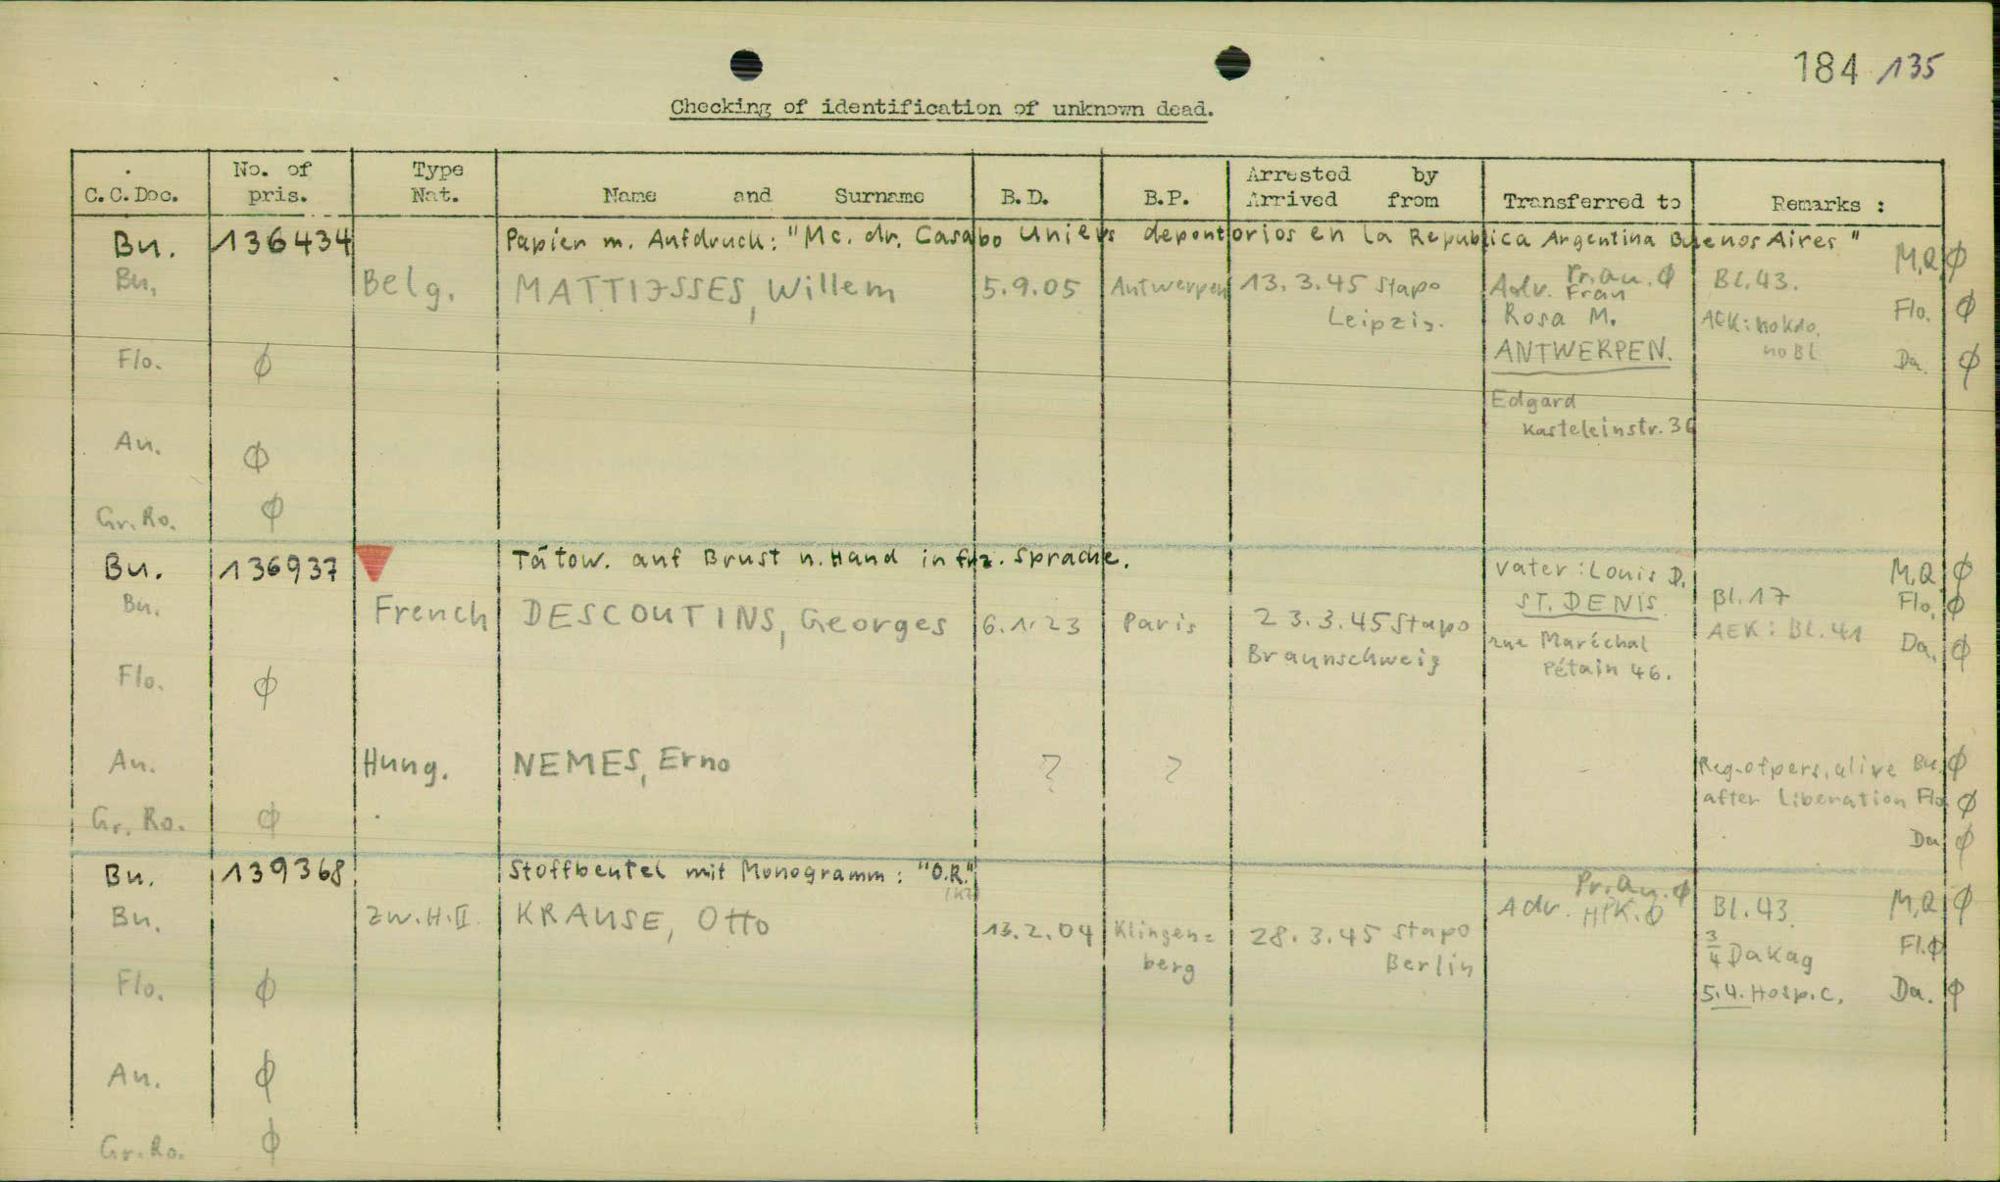 184 135
Checking of identification of unknown dead.
C.C.Doc. No. of pris. Type Nat. Name and Surname B.D. B.P. Arrested by Arrived from Transferred to Remarks :
Bu. 136434 Papier m. Aufdruck: "Mc. dr. Casabo Uniers depontorios en la Republica Argentina Buenos Aires" M,Q Ø
Bu. Belg. MATTIJSSES, Willem 5.9.05 Antwerpen 13.3.45 Stapo Adr. Pr.Au. Ø Bl.43.
Leipzig. Frau Rosa M. AEK: no Kdo. Flo. Ø
Flo. Ø ANTWERPEN. no Bl Da. Ø
Edgard
An. Ø Kasteleinstr. 36
Gr.Ro. Ø
Bu. 136937 Tätow. auf Brust u. Hand in frz. Sprache. Vater: Louis D. M,Q Ø
Bu. French DESCOUTINS, Georges 6.1.23 Paris 23.3.45 Stapo ST. DENIS Bl.17 Flo. Ø
Braunschweig rue Maréchal AEK: Bl.41 Da. Ø
Flo. Ø Pétain 46.
An. Hung. NEMES, Erno ? ? - Reg. of pers. alive Bu. Ø
Gr. Ro. Ø after Liberation Flo Ø
Da Ø
Bu. 139368 Stoffbeutel mit Monogramm: "O.R." Pr.Au. Ø
Bu. zw.H.II. KRAUSE, Otto 13.2.04 Klingen= 28.3.45 Stapo Adr. HPK. Ø Bl.43. M,Q Ø
berg Berlin 3/4 Dakag Fl. Ø
Flo. Ø 5.4. Hosp.C. Da. Ø
An. Ø
Gr.Ro. Ø